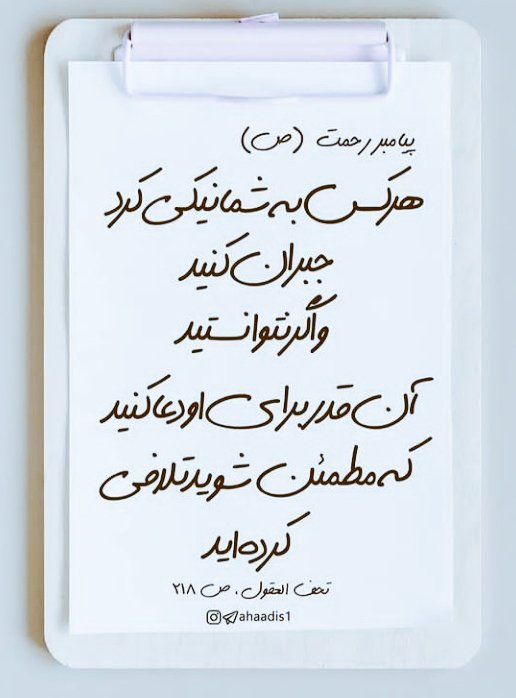 پیامبر رحمت (ص)
هرکس به شما نیکی کرد
جبران کنید
و اگر نتوانستید
آن قدر برای او دعا کنید
که مطمئن شوید تلافی
کرده اید
تحف العقول، ص ۲۱۸
ahaadis1